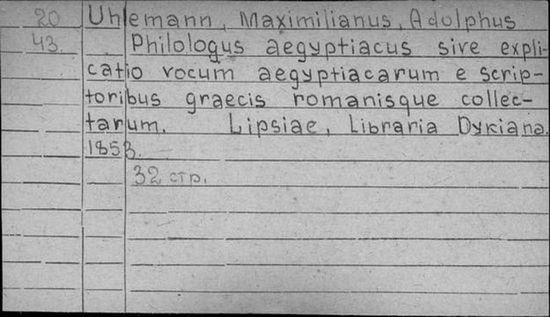 20 Uhlemann, Maximilianus, Adolphus
43. Philologus aegyptiacus sive expli-
catio vocum aegyptiacarum e scrip-
toribus graecis romanisque collec-
tarum. Lipsiae, Libraria Dykiana,
1853.
32 стр.